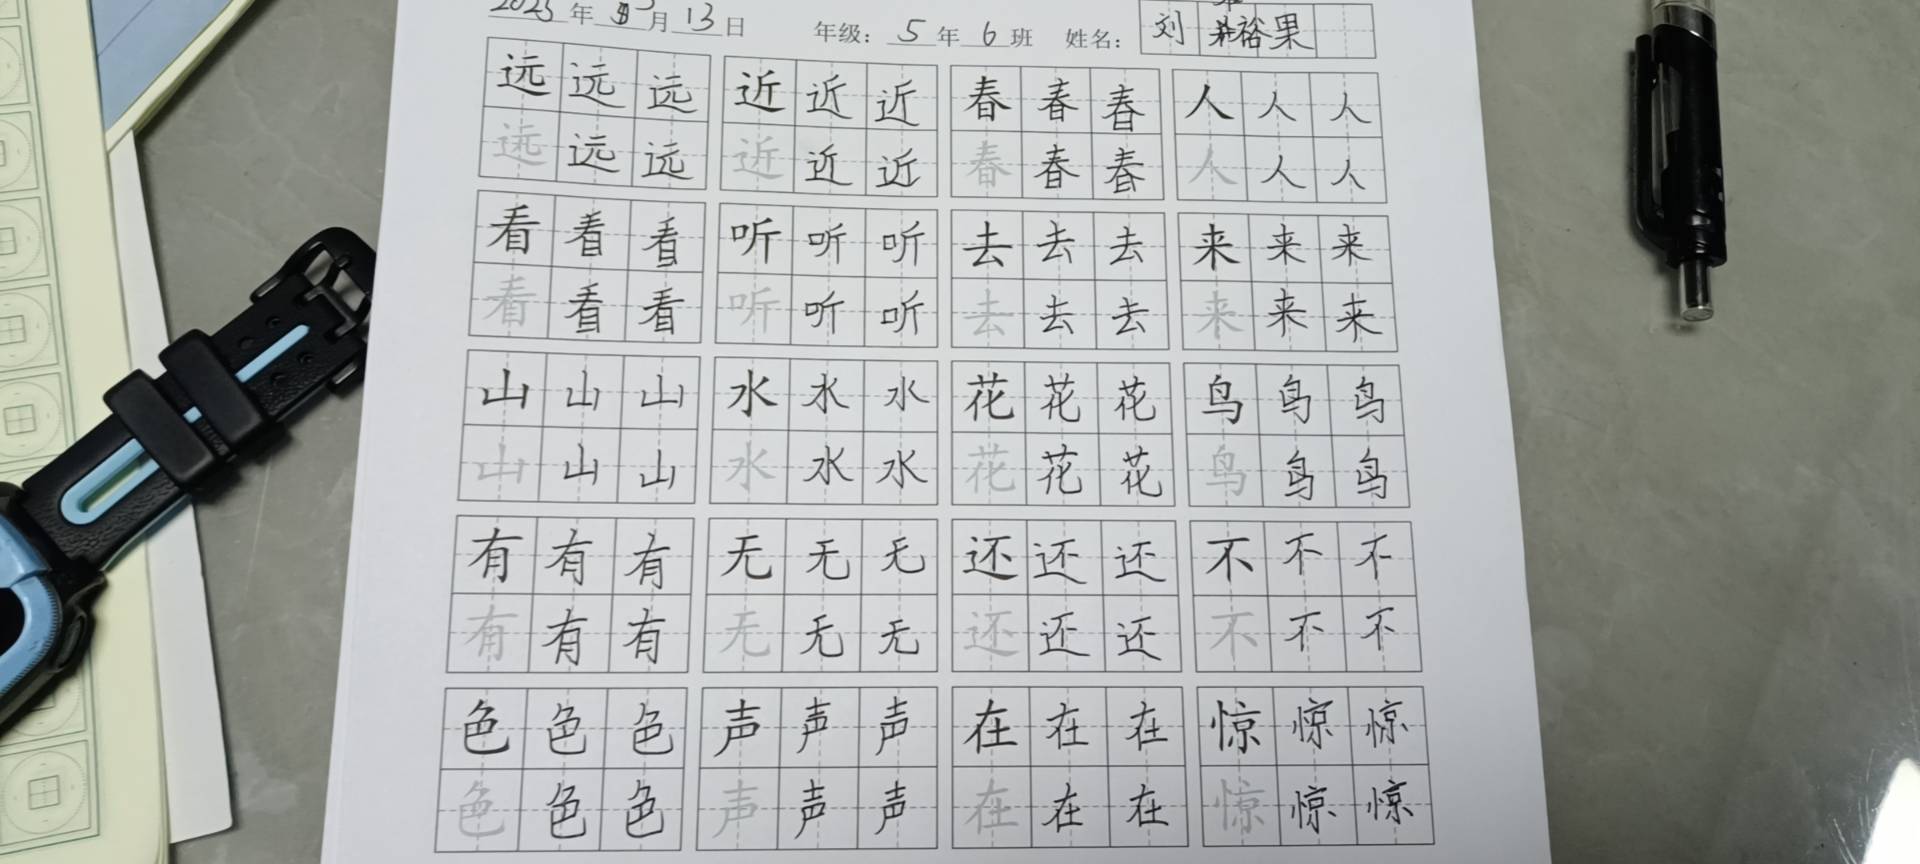 2025年 月13日 年级：5年6班 姓名：刘 裕果
远远远 近近近 春春春 人人人
远远远 近近近 春春春 人人人
看看看 听听听 去去去 来来来
看看看 听听听 去去去 来来来
山山山 水水水 花花花 鸟鸟鸟
山山山 水水水 花花花 鸟鸟鸟
有有有 无无无 还还还 不不不
有有有 无无无 还还还 不不不
色色色 声声声 在在在 惊惊惊
色色色 声声声 在在在 惊惊惊